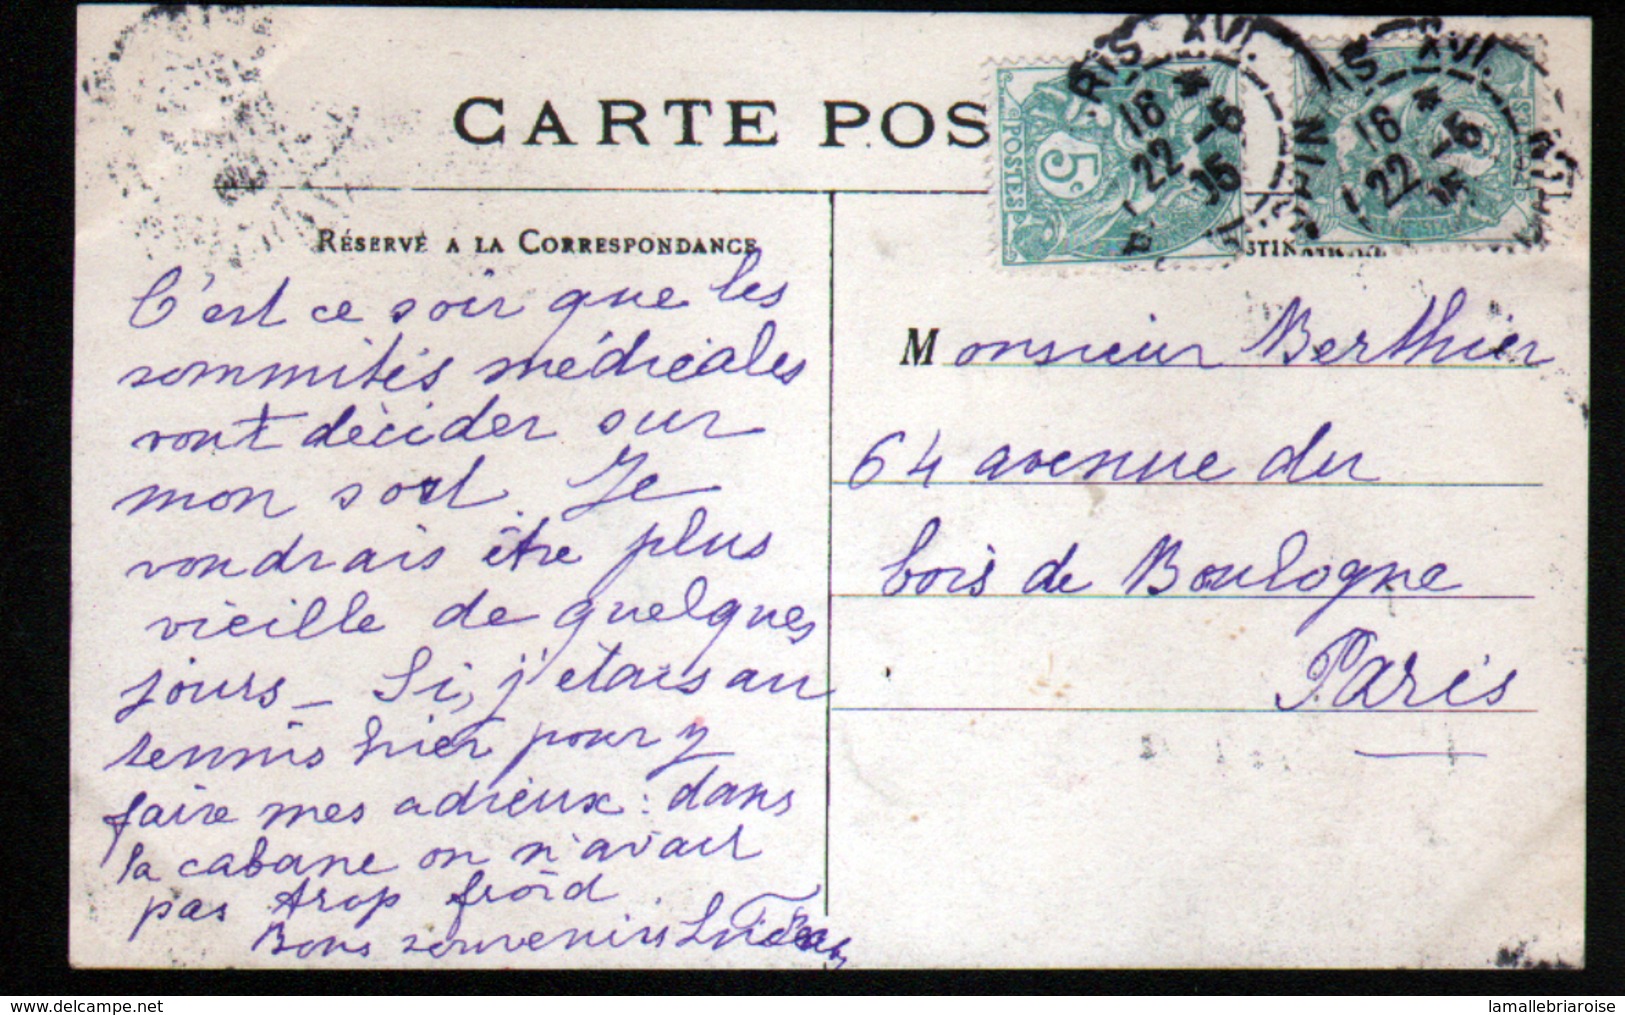 CARTE POS
RÉSERVÉ A LA CORRESPONDANCE
C'est ce soir que les
sommités médicales
vont décider sur
mon sort. Je
voudrais être plus
vieille de quelques
jours _ Si, j'étais au
tennis hier pour y
faire mes adieux : dans
la cabane on n'avait
pas trop froid
Bons souvenirs
POSTES 5c
RIS XVI.
16 * 5
22 -
05
IS XVI.
16 * 5
22 -
PIN
STINATAIRE
Monsieur Berthier
64 avenue du
bois de Boulogne
Paris
www.delcampe.net
lamallebriaroise